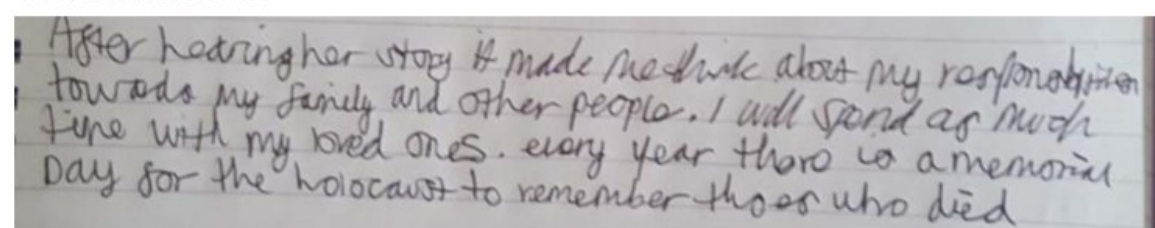 After hearing her story it made me think about my responsibilities
towards my family and other people. I will spend as much
time with my loved ones. every year there is a memorial
Day for the holocaust to remember thoes who died